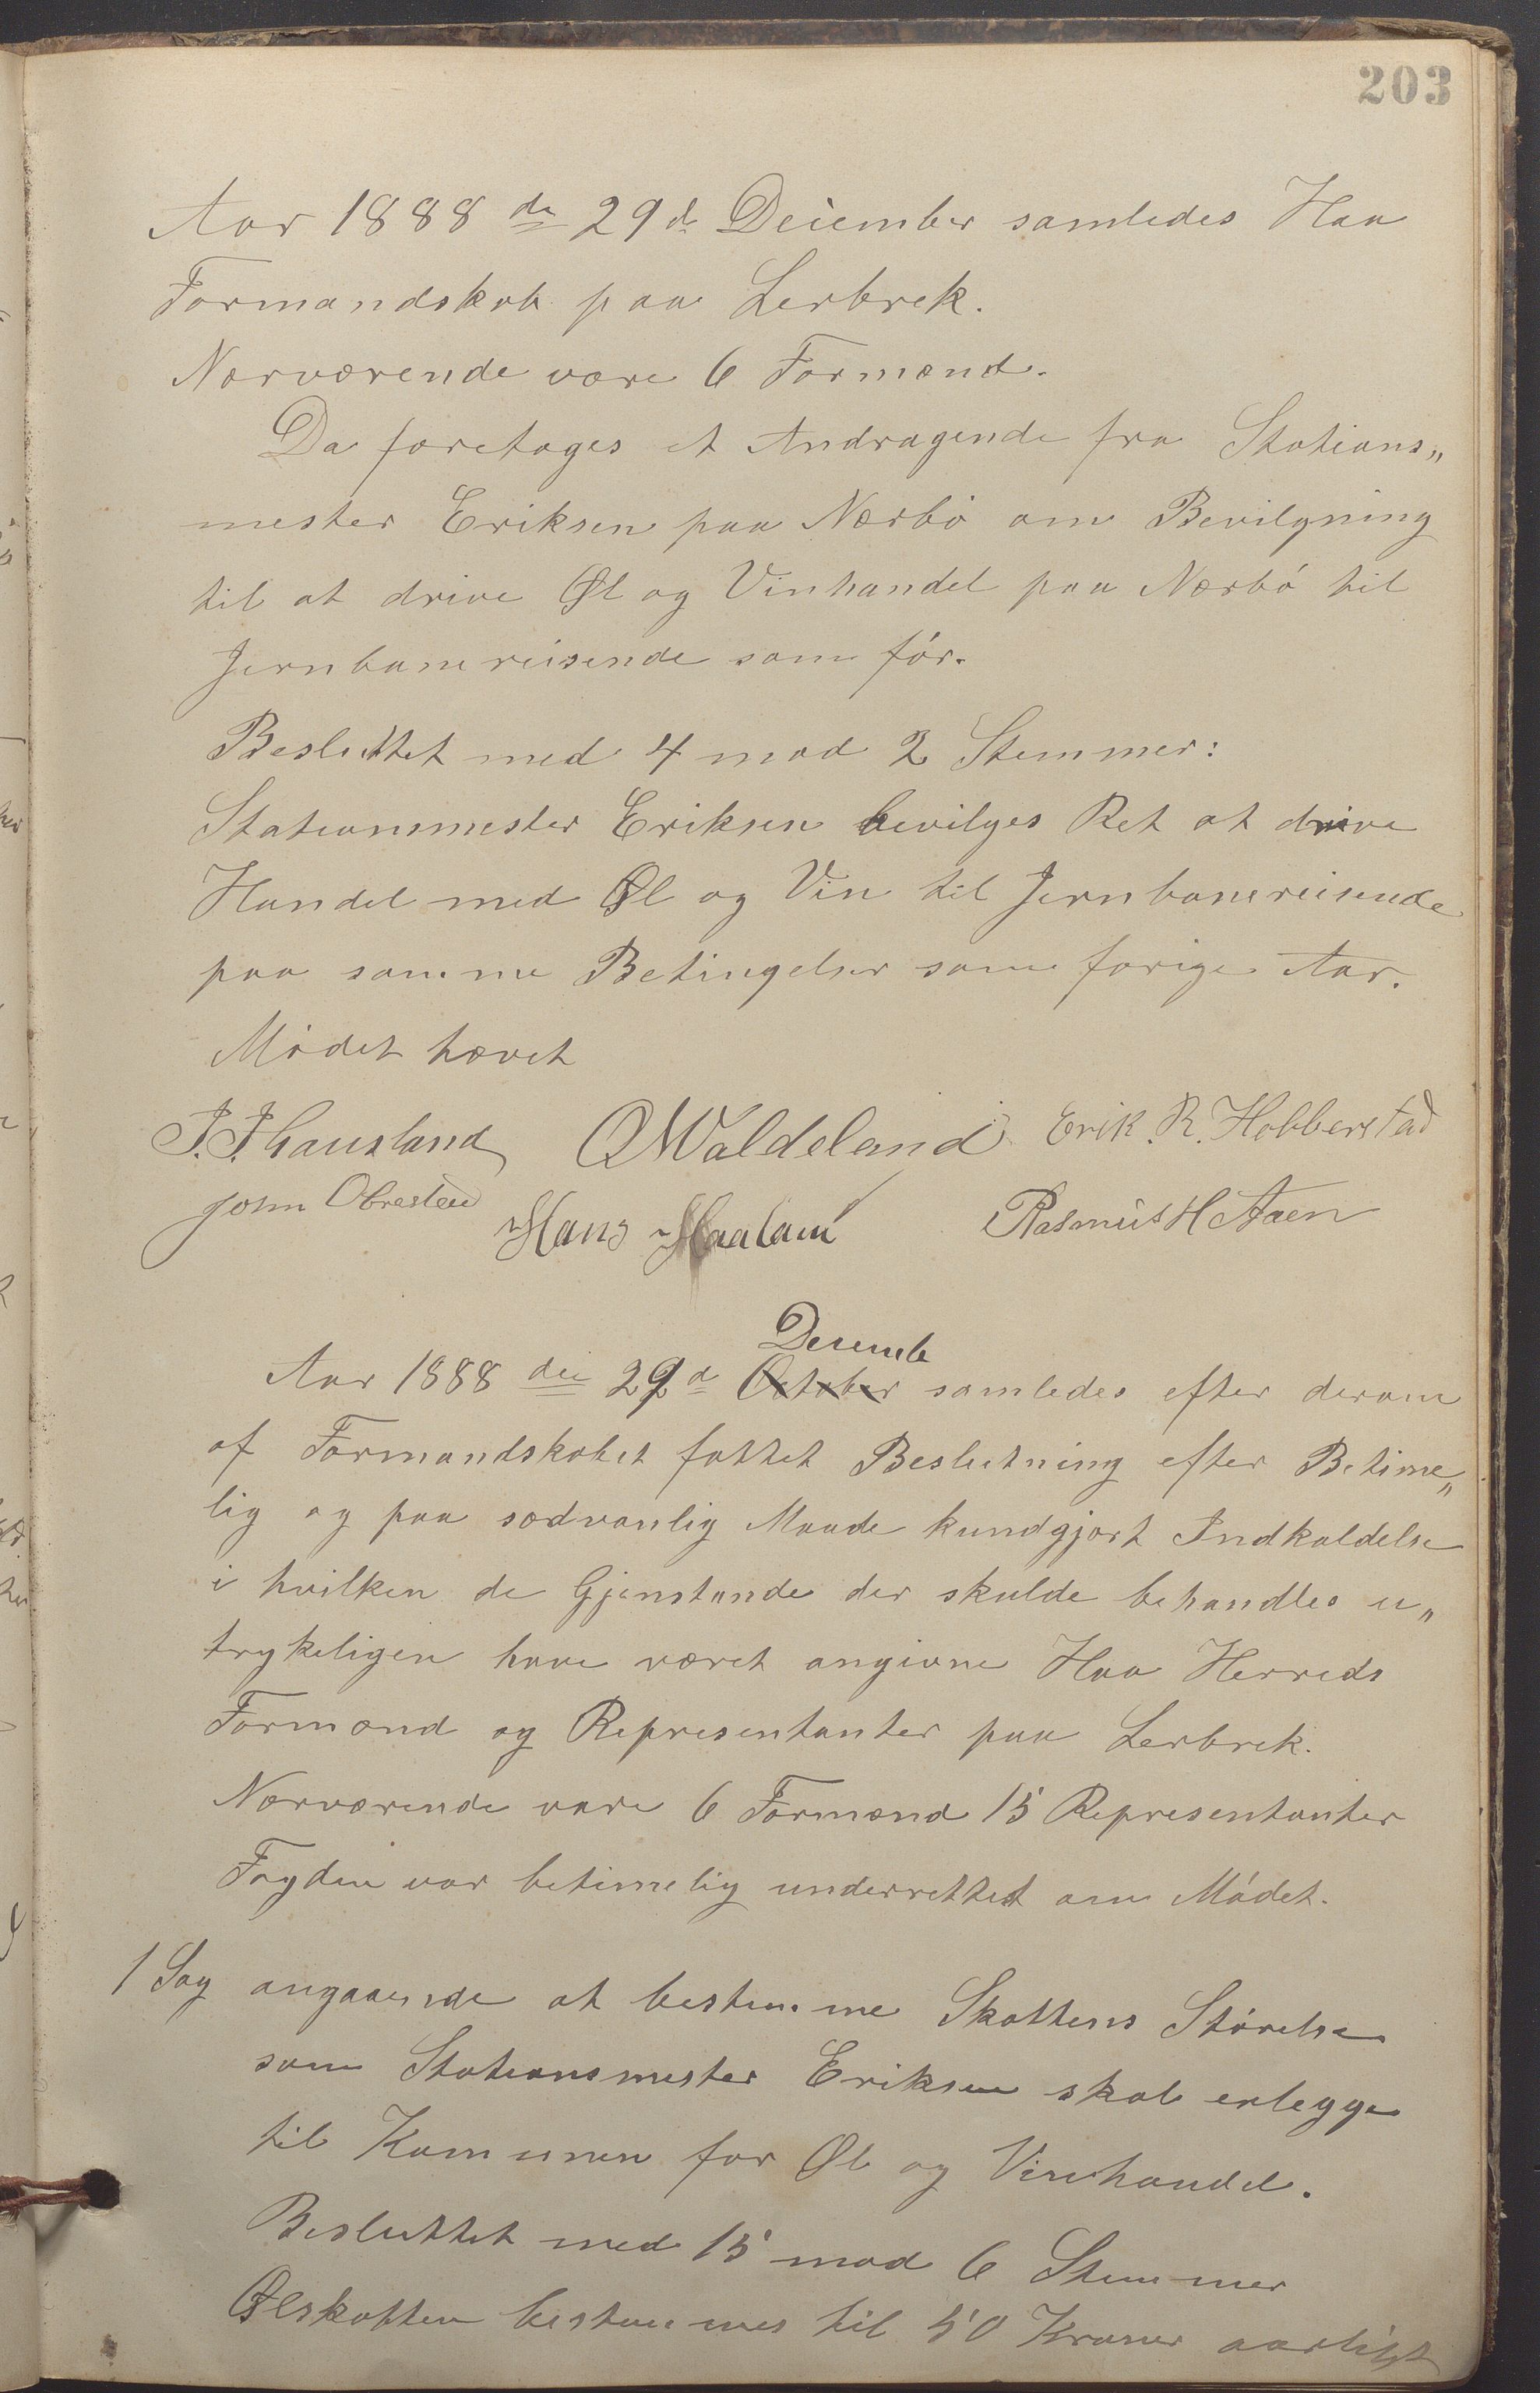 203
Aar 1888 den 29de December samledes Haa
Formandskab paa Lerbrek.
Nærværende vare 6 Formænd.
Da foretages et Andragende fra Stations„
mester Eriksen paa Nærbö om Bevilgning
til at drive Øl og Vinhandel paa Nærbó til
Jernbanereisende som fór.
Besluttet med 4 mod 2 Stemmer:
Stationsmester Eriksen bevilges Ret at drive
Handel med Øl og Vin til Jernbanereisende
paa samme Betingelser som forige Aar.
Mödet hævet
J. J. Gausland OWaldeland Erik. R. Hobberstad
John Obrestad Hans Haaland Rasmus H Aaen
Decembe
Aar 1888 den 29d October samledes efter derom
af Formandskabet fattet Beslutning efter Betime„
lig og paa sædvanlig Maade kundgjort Indkaldelse
i hvilken de Gjenstande der skulde behandles u„
trykeligen have været angivne Haa Herreds
Formænd og Representanter paa Lerbrek.
Nærværende vare 6 Formænd 15 Representanter
Fogden var betimelig underrettet om Mödet.
1 Sag angaaende at bestemme Skattens Störelse
som Stationsmester Eriksen skal erlegge
til Komunen for Øl og Vinhandel.
Besluttet med 15 mod 6 Stemmer
Ølskatten bestemmes til 50 Kroner aarligt